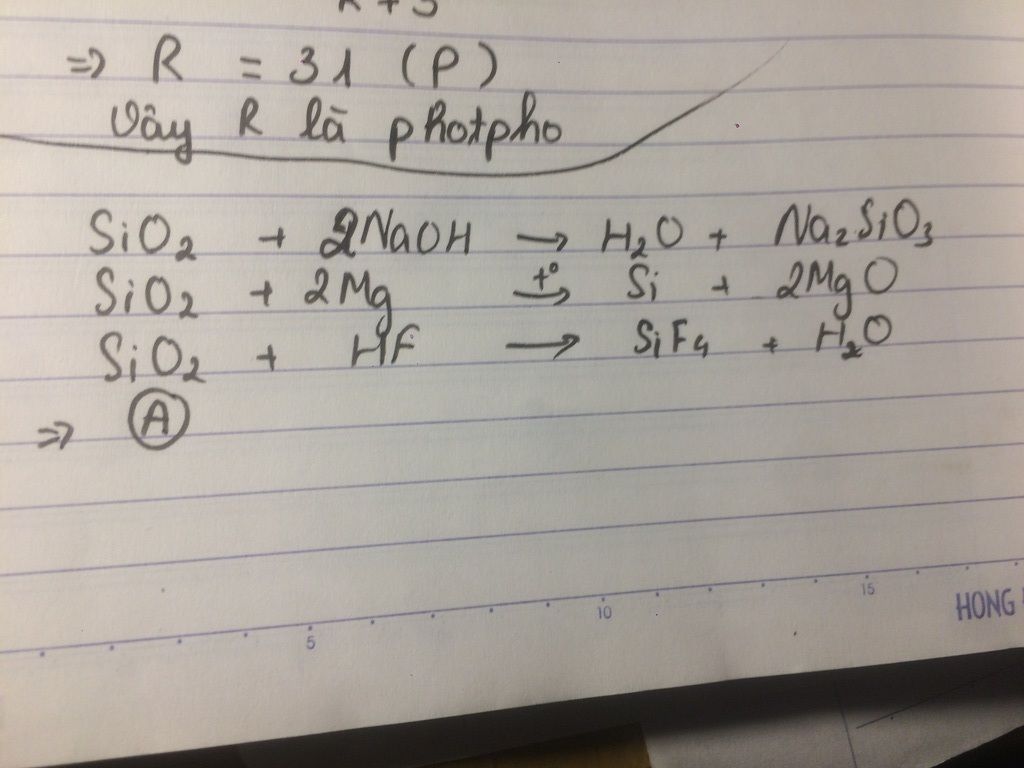 R + 3
=> R = 31 (P)
Vậy R là photpho
SiO₂ + 2NaOH → H₂O + Na₂SiO₃
SiO₂ + 2Mg t° → Si + 2MgO
SiO₂ + HF → SiF₄ + H₂O
=> A
5 10 15
HONG